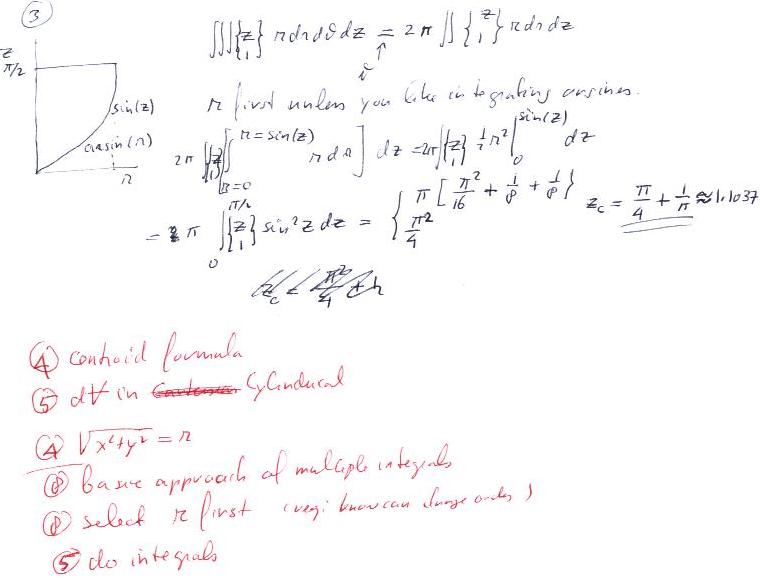 ③
z
π/2
sin(z)
arcsin(r)
r
∭{z 1} r dr dϑ dz = 2π ∬ {z 1} r dr dz
↑
ϑ
r first unless you like integrating arcsines.
2π ∫{z 1}[∫_{r=0}^{r=sin(z)} r dr] dz = 2π∫{z 1} ½r² |_0^{sin(z)} dz
= π ∫_0^{π/2} {z 1} sin² z dz = { π [π²/16 + 1/8 + 1/8} π²/4 z_c = π/4 + 1/π ≈ 1.1037
④ centroid formula
⑤ dV in Cylindrical
④ √x²+y² = r
⑧ basic approach of multiple integrals
⑧ select r first can change order)
⑤ do integrals